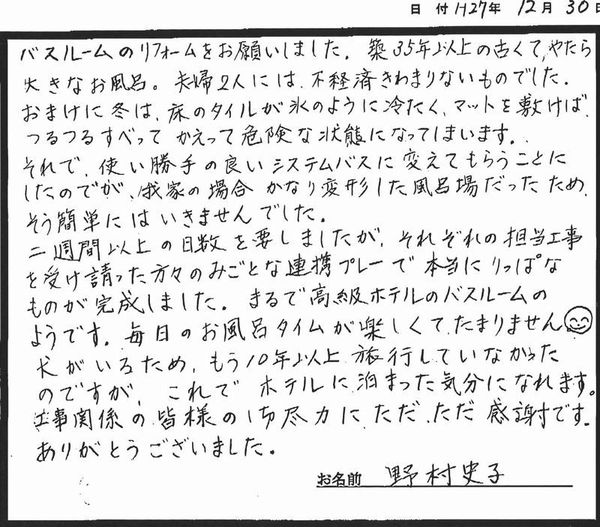 日付 H27年 12月 30日
バスルームのリフォームをお願いしました。築35年以上の古くて、やたら
大きなお風呂。夫婦2人には、不経済きわまりないものでした。
おまけに冬は、床のタイルが氷のように冷たく、マットを敷けば、
つるつるすべって かえって危険な状態になってしまいます。
それで、使い勝手の良いシステムバスに変えてもらうことに
したのですが、我家の場合 かなり変形した風呂場だったため、
そう簡単にはいきませんでした。
二週間以上の日数を要しましたが、それぞれの担当工事
を受け請った方々のみごとな連携プレーで本当にりっぱな
ものが完成しました。まるで高級ホテルのバスルームの
ようです。毎日のお風呂タイムが楽しくてたまりません
犬がいるため、もう10年以上旅行していなかった
のですが、これでホテルに泊まった気分になれます。
工事関係の皆様のご尽力に、ただ、ただ感謝です。
ありがとうございました。
お名前 野村史子